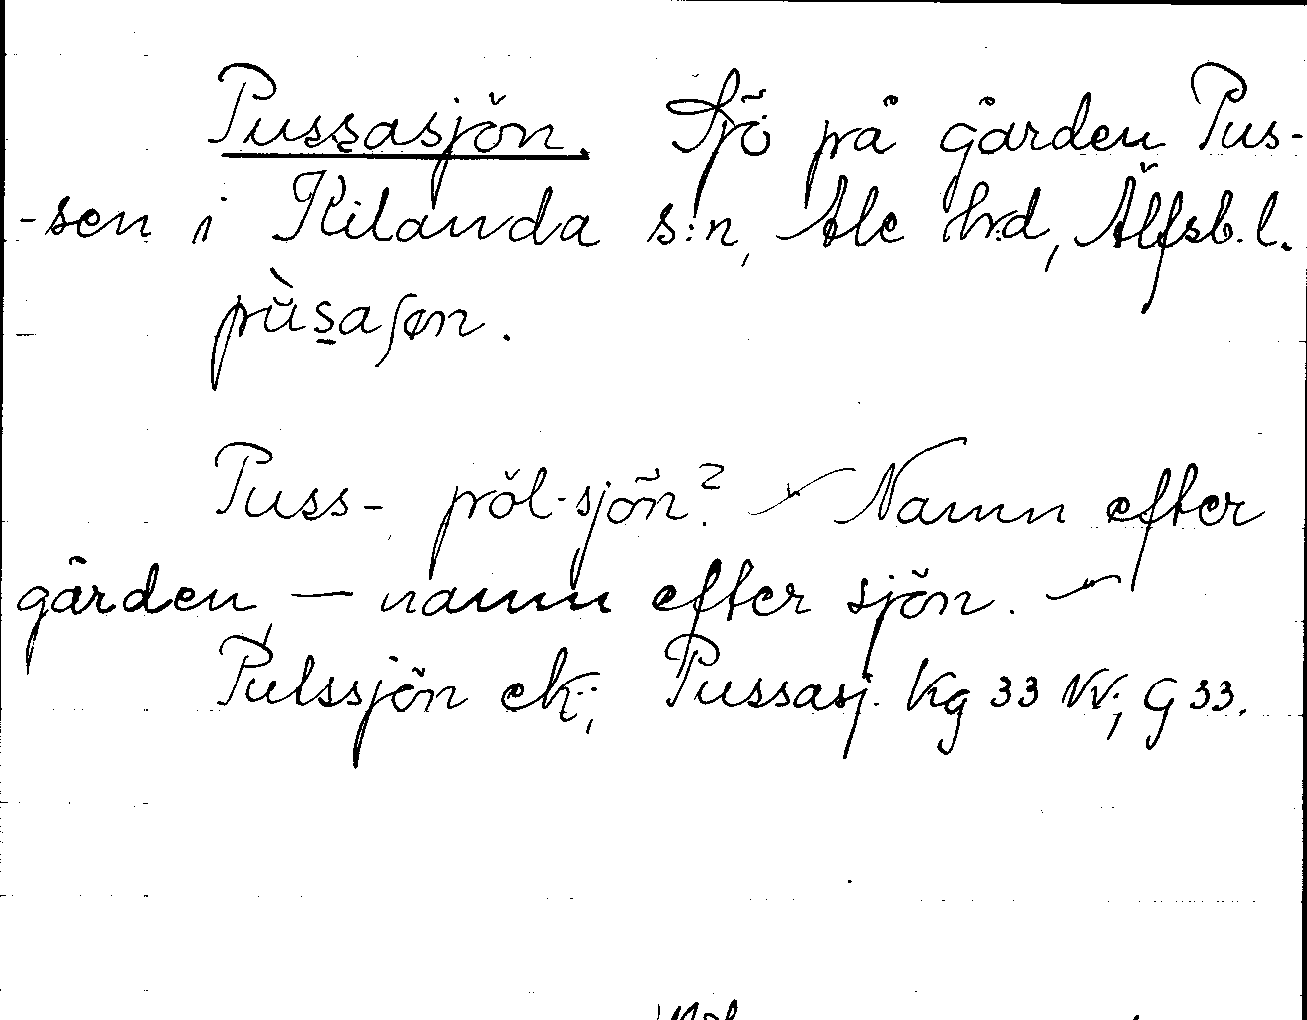 Pussasjön. Sjö på gården Pus-
-sen i Kilanda s:n, Ale hrd, Älfsb. l.
pùsaʃøn.
Puss- pöl-sjön? Namn efter
gården, — namn efter sjön. —
Pulssjön ek.; Pussasj. Kg 33 NV; G 33.